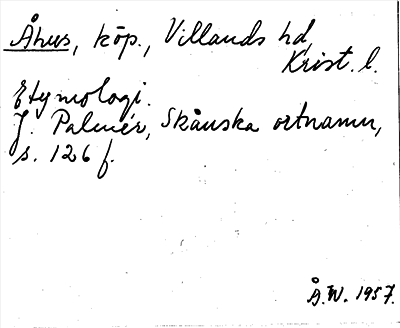 Åhus, köp., Villands hd,
Krist. l.
Etymologi.
J. Palmér, Skånska ortnamn,
s. 126 f.
Å.W. 1957.